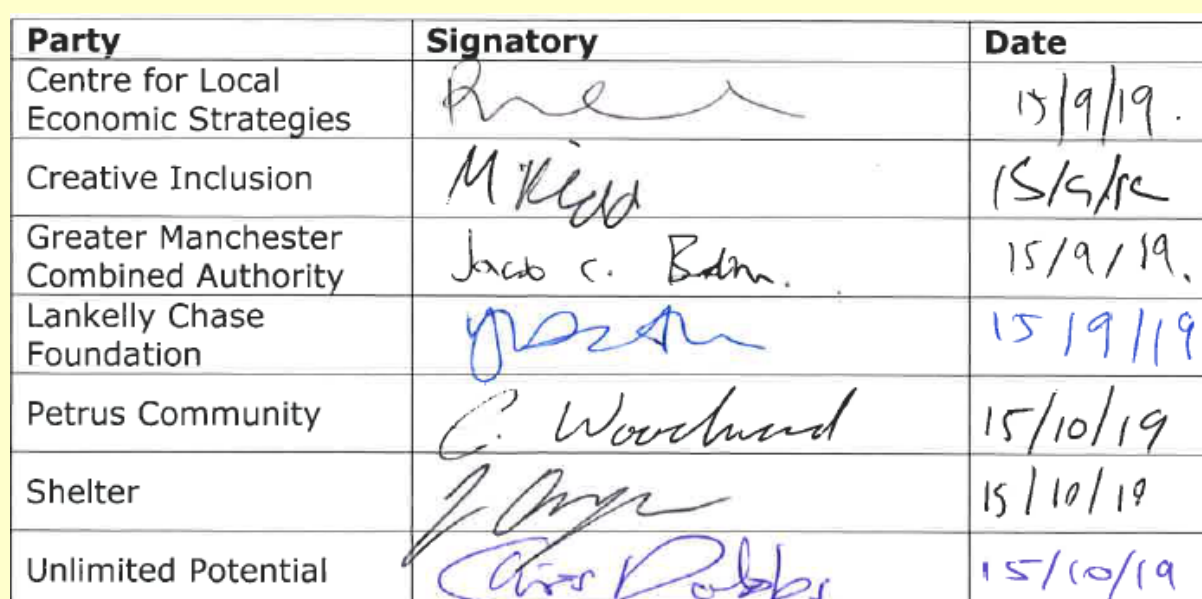 Party Signatory Date
Centre for Local
Economic Strategies 15/9/19.
Creative Inclusion M Kidd 15/9/19
Greater Manchester
Combined Authority Jacob C. 15/9/19.
Lankelly Chase
Foundation 15/9/19
Petrus Community C. Woodward 15/10/19
Shelter 15/10/19
Unlimited Potential Chris Dabbs 15/10/19